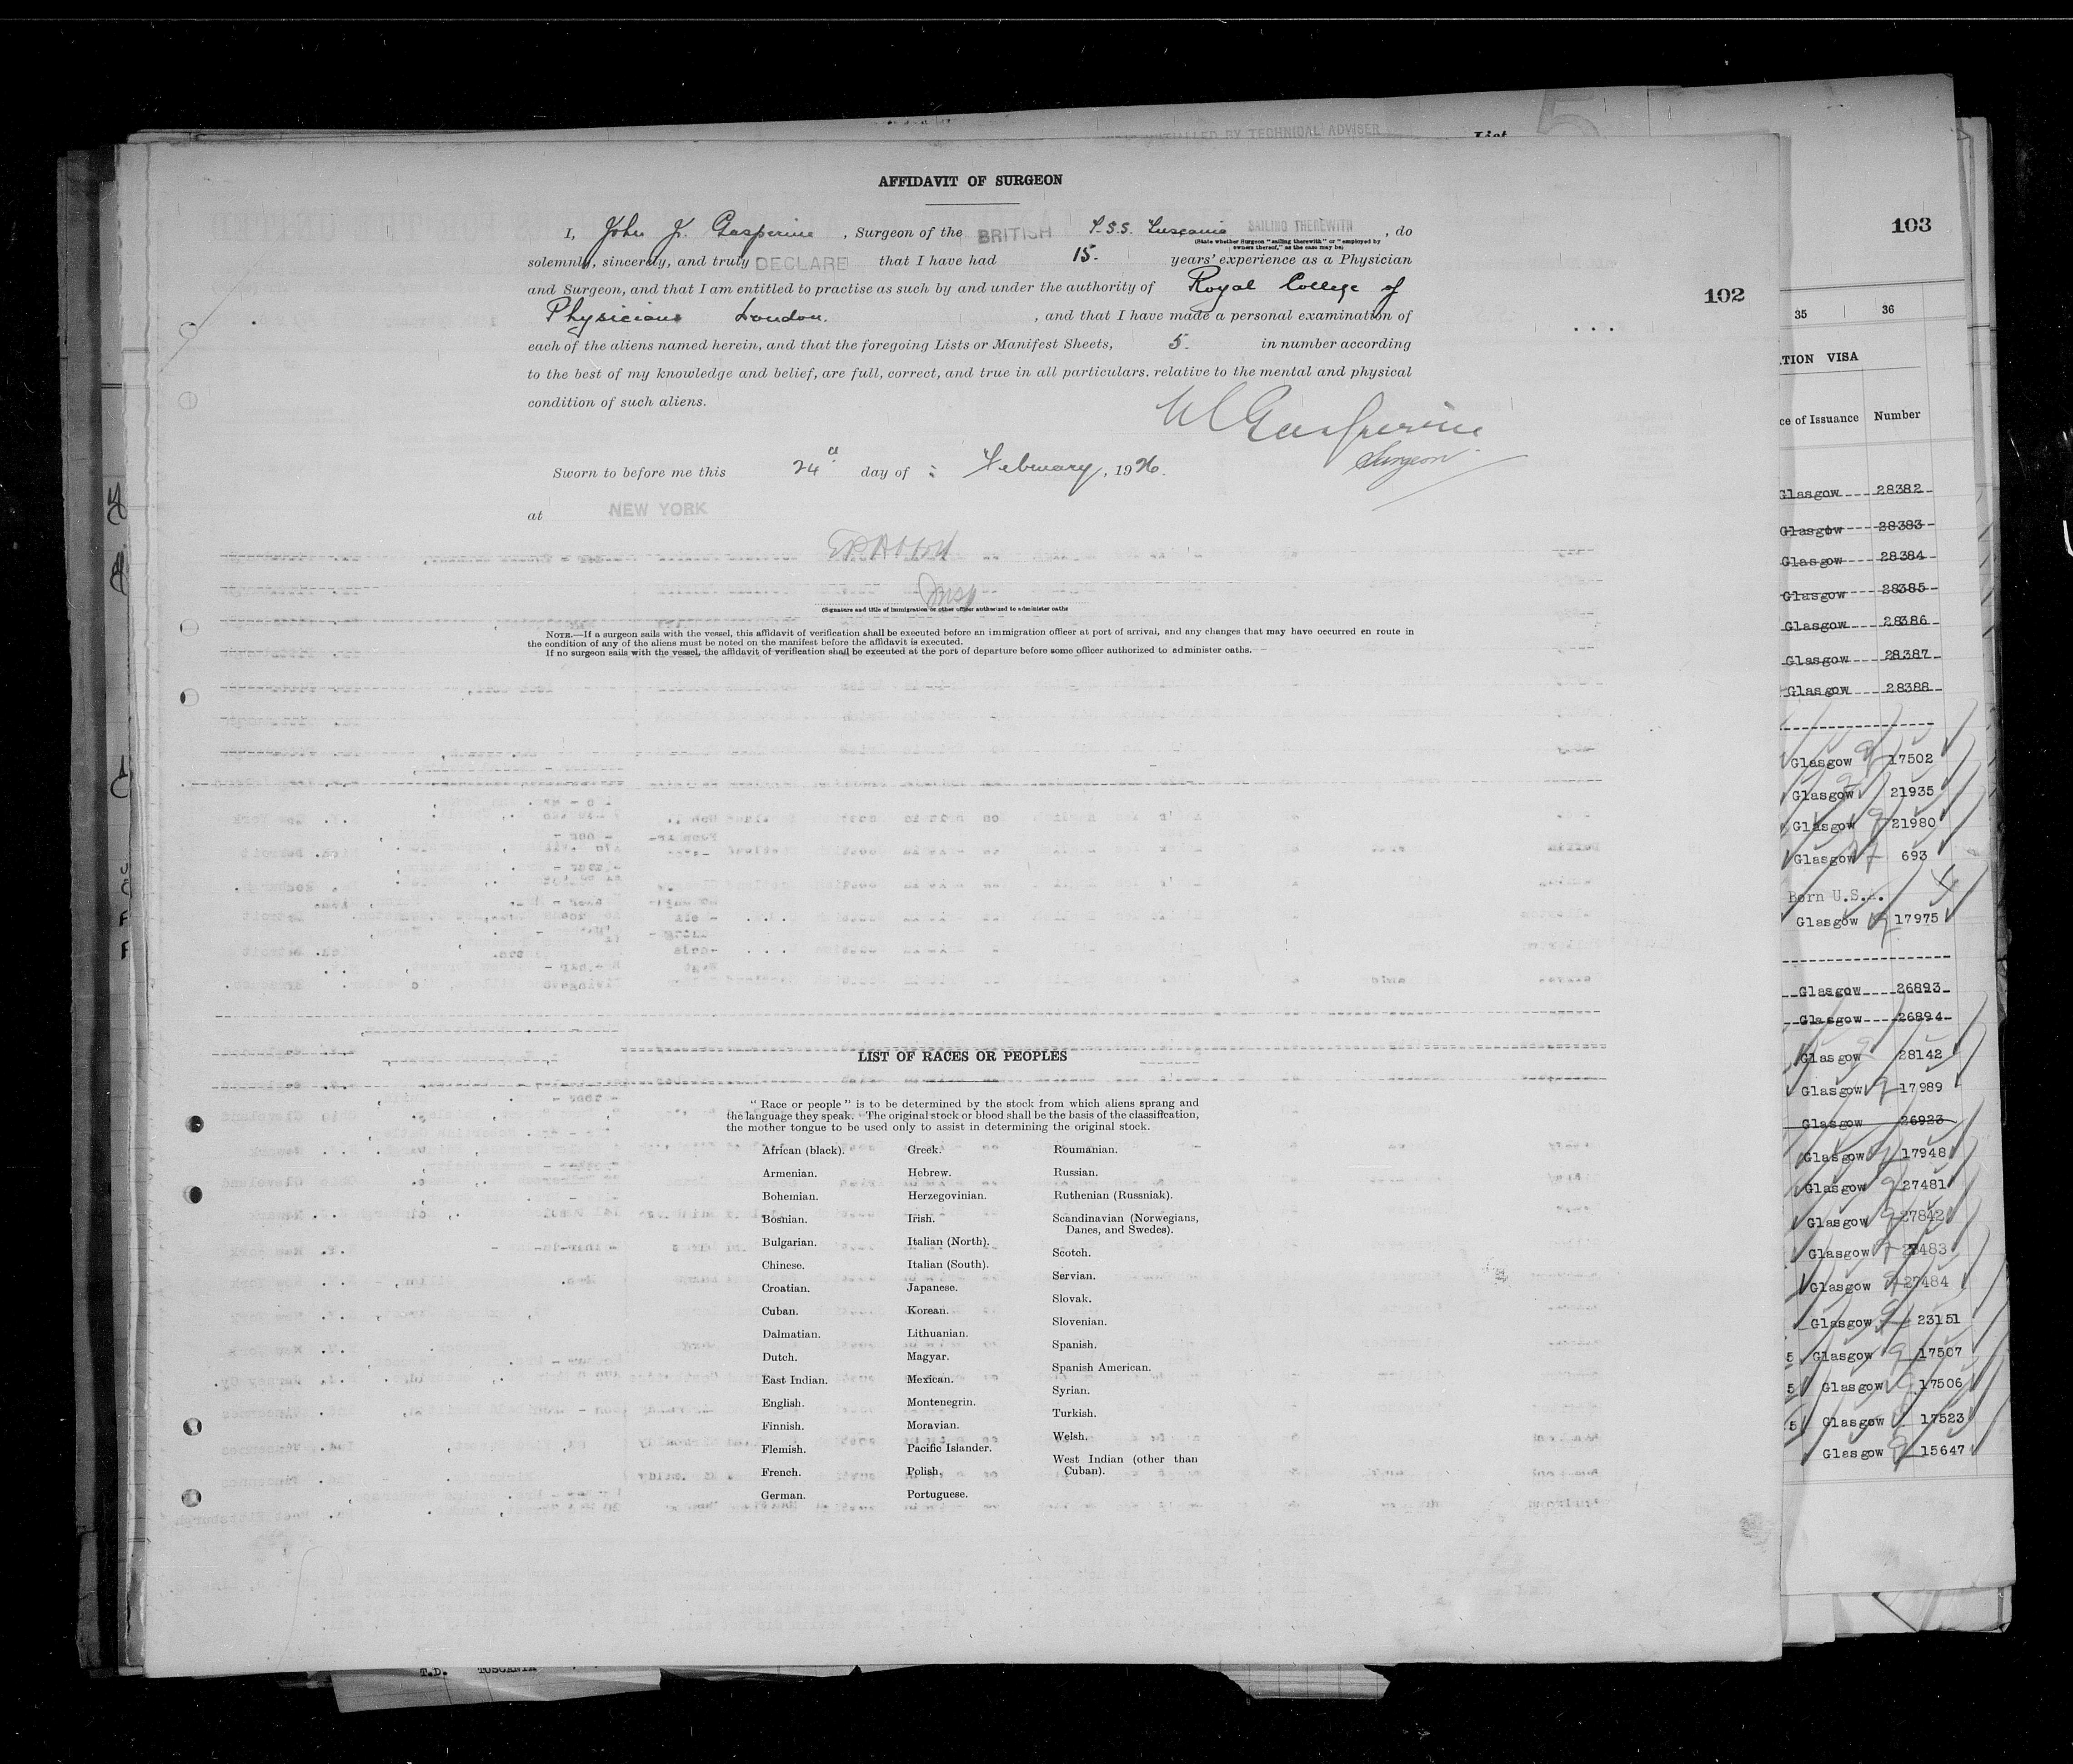 INITIALLED BY TECHNICAL ADVISER
List
5
AFFIDAVIT OF SURGEON
I, John J. Gasperine, Surgeon of the BRITISH T.S.S. Tuscania SAILING THEREWITH, do
(State whether Surgeon "sailing therewith" or "employed by
owners thereof," as the case may be)
solemnly, sincerely, and truly DECLARE that I have had 15. years' experience as a Physician
and Surgeon, and that I am entitled to practise as such by and under the authority of Royal College of
Physicians London. , and that I have made a personal examination of
each of the aliens named herein, and that the foregoing Lists or Manifest Sheets, 5. in number according
to the best of my knowledge and belief, are full, correct, and true in all particulars. relative to the mental and physical
condition of such aliens.
Gasperine
Surgeon
Sworn to before me this 24 day of February, 1926.
at NEW YORK
Insp
(Signature and title of immigration or other officer authorized to administer oaths
NOTE.—If a surgeon sails with the vessel, this affidavit of verification shall be executed before an immigration officer at port of arrival, and any changes that may have occurred en route in
the condition of any of the aliens must be noted on the manifest before the affidavit is executed.
If no surgeon sails with the vessel, the affidavit of verification shall be executed at the port of departure before some officer authorized to administer oaths.
LIST OF RACES OR PEOPLES
"Race or people" is to be determined by the stock from which aliens sprang and
the language they speak. The original stock or blood shall be the basis of the classification,
the mother tongue to be used only to assist in determining the original stock.
African (black).
Armenian.
Bohemian.
Bosnian.
Bulgarian.
Chinese.
Croatian.
Cuban.
Dalmatian.
Dutch.
East Indian.
English.
Finnish.
Flemish.
French.
German.
Greek.
Hebrew.
Herzegovinian.
Irish.
Italian (North).
Italian (South).
Japanese.
Korean.
Lithuanian.
Magyar.
Mexican.
Montenegrin.
Moravian.
Pacific Islander.
Polish.
Portuguese.
Roumanian.
Russian.
Ruthenian (Russniak).
Scandinavian (Norwegians,
Danes, and Swedes).
Scotch.
Servian.
Slovak.
Slovenian.
Spanish.
Spanish American.
Syrian.
Turkish.
Welsh.
West Indian (other than
Cuban).
102
103
35 36
TION VISA
ce of Issuance Number
Glasgow 28382
Glasgow 28383
Glasgow 28384
Glasgow 28385
Glasgow 28386
Glasgow 28387
Glasgow 28388
Glasgow 17502
Glasgow 21935
Glasgow 21980
Glasgow 693
Born U.S.A.
Glasgow 17975
Glasgow 26893
Glasgow 26894
Glasgow 28142
Glasgow 17989
Glasgow 26923
Glasgow 17948
Glasgow 27481
Glasgow 27842
Glasgow 27483
Glasgow 27484
Glasgow 23151
5 Glasgow 17507
5 Glasgow 17506
5 Glasgow 17523
Glasgow 15647
T.D. TUSCANIA